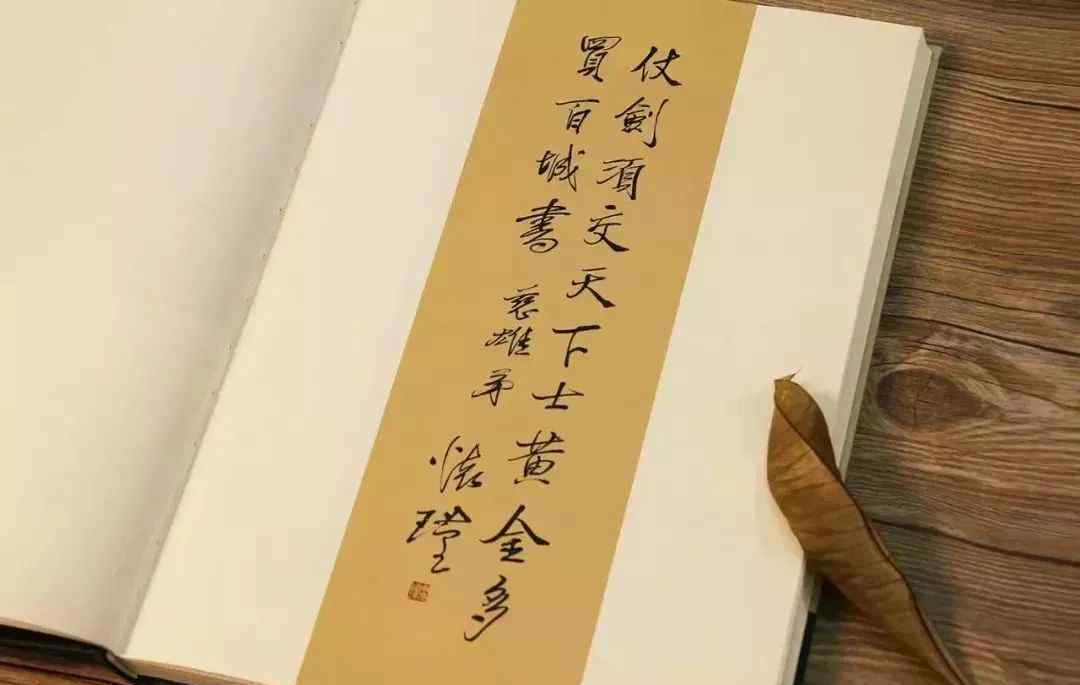 仗劍須交天下士黃金多
買百城書
慈雄弟
懷瑾